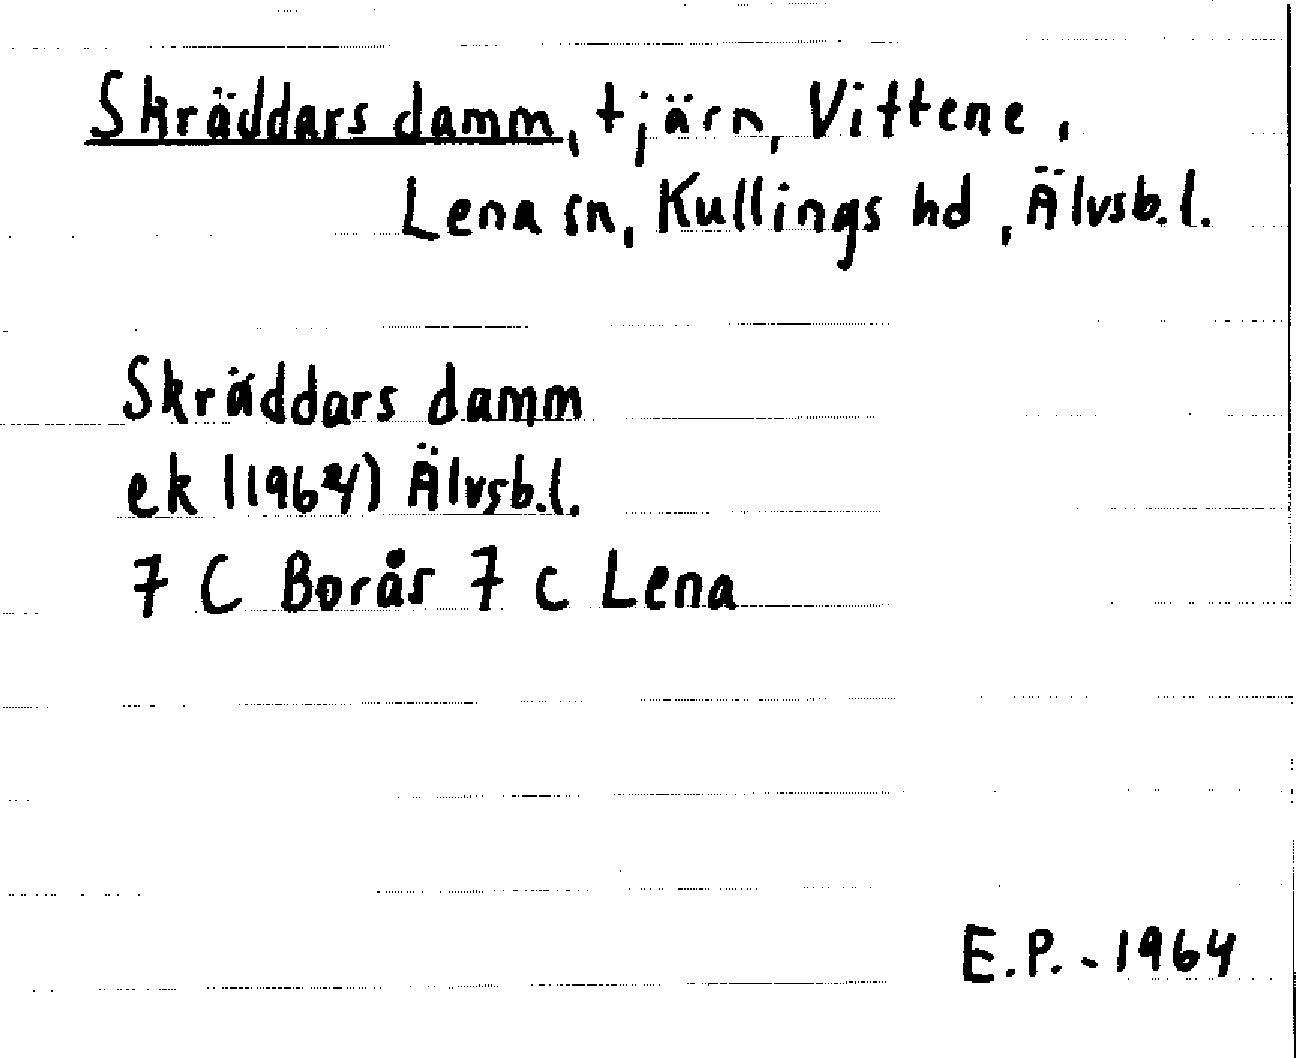 Skräddars damm, tjärn, Vittene,
Lena sn, Kullings hd, Älvsb.l.
Skräddars damm
ek (1964) Älvsb.l.
7 C Borås 7 c Lena
E.P. - 1964